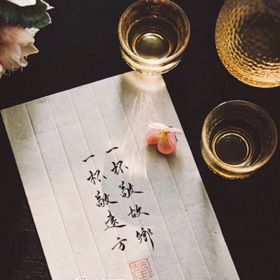 一杯敬故鄉
一杯敬遠方